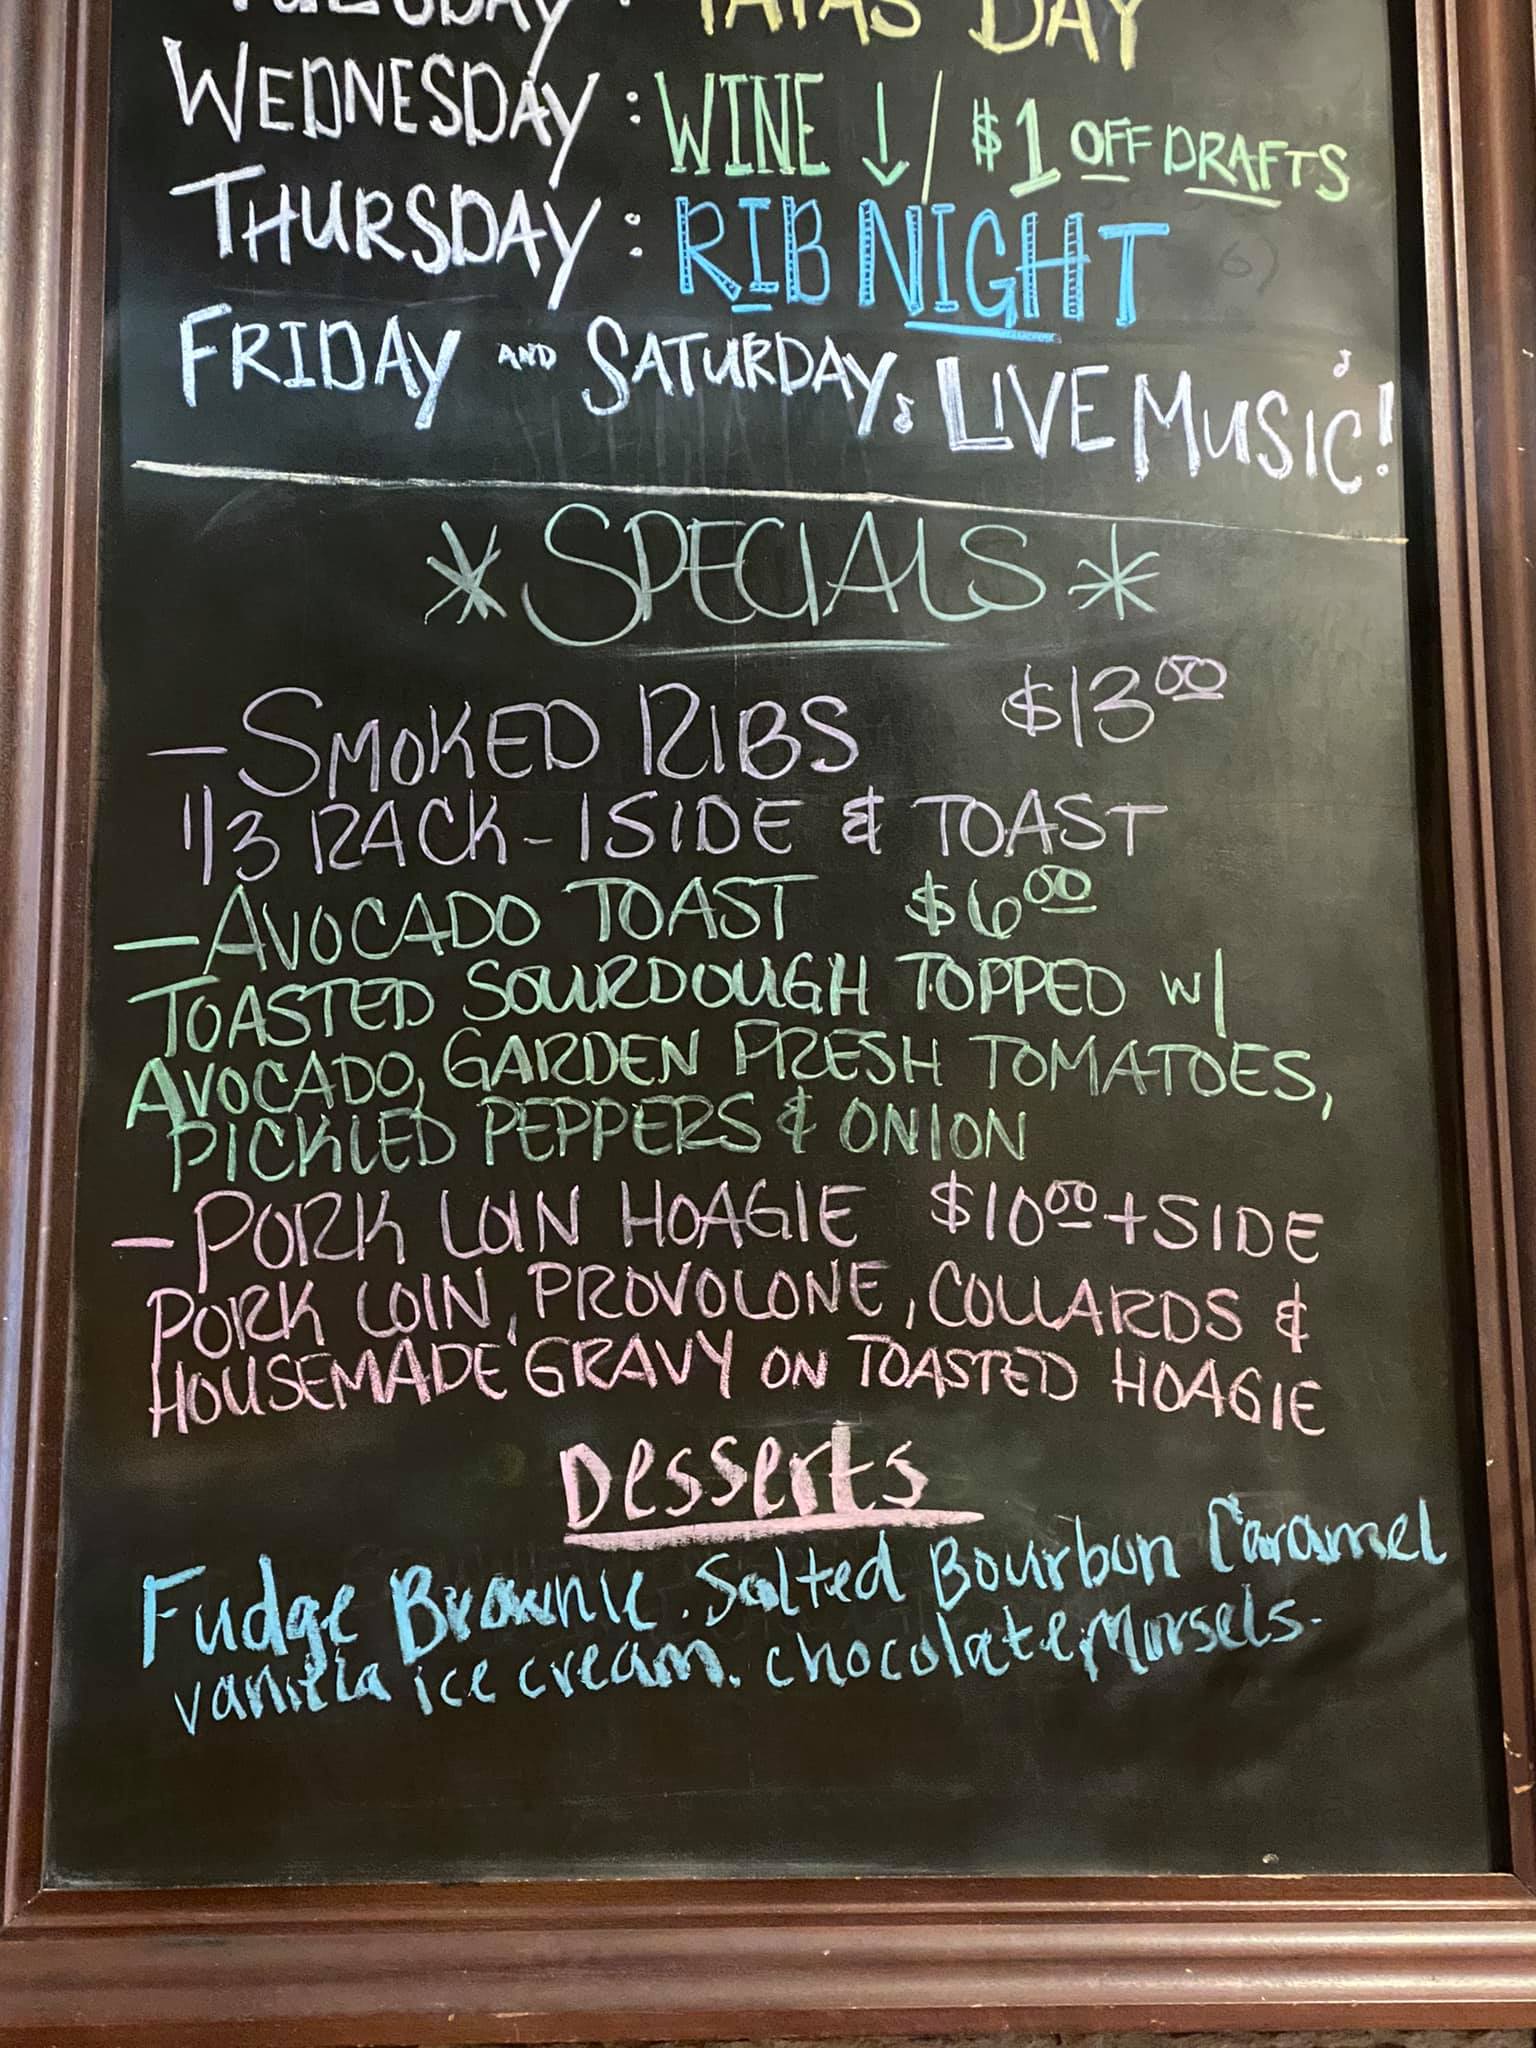 TUESDAY: TATAS DAY
WEDNESDAY: WINE ↓ / $1 OFF DRAFTS
THURSDAY: RIB NIGHT
FRIDAY AND SATURDAY: LIVE MUSIC!
* SPECIALS *
- SMOKED RIBS $13.00
1/3 RACK - 1 SIDE & TOAST
- AVOCADO TOAST $6.00
TOASTED SOURDOUGH TOPPED W/
AVOCADO, GARDEN FRESH TOMATOES,
PICKLED PEPPERS & ONION
- PORK LOIN HOAGIE $10.00 + SIDE
PORK LOIN, PROVOLONE, COLLARDS &
HOUSEMADE GRAVY ON TOASTED HOAGIE
Desserts
Fudge Brownie. Salted Bourbon Caramel
vanilla ice cream. chocolate Morsels.